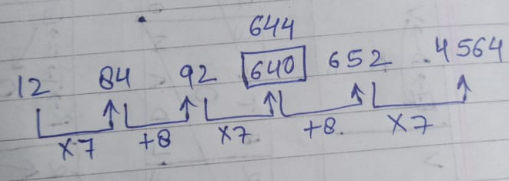 644
12 84 92 640 652 4564
×7 +8 ×7 +8 ×7